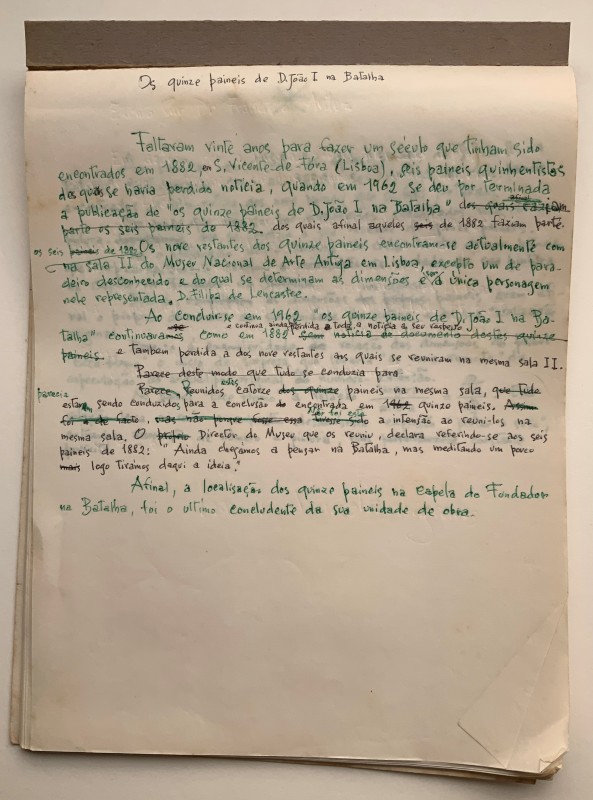 Os quinze paineis de D. João I na Batalha
Faltavam vinte anos para fazer um século que tinham sido
encontrados em 1882 em S. Vicente de Fóra (Lisboa), seis paineis quinhentistas
dos quais se havia perdido noticia, quando em 1962 se deu por terminada
a publicação de "os quinze paineis de D. João I na Batalha" dos quais faziam
afinal
parte os seis paineis de 1882. dos quais afinal aqueles seis de 1882 faziam parte.
os seis paineis de 1882 Os nove restantes dos quinze paineis encontram-se actualmente com
na sala II do Museu Nacional de Arte Antiga em Lisboa, excepto um de para-
deiro desconhecido e do qual se determinam as dimensões e a única personagem
nele representada, D. Filipa de Lencastre.
Ao concluir-se em 1962 "os quinze paineis de D. João I na Ba-
e continua ainda perdida toda a noticia a seu respeito
talha" continuavamos como em 1882 sem noticia do documento destes quinze
paineis. e tambem perdida a dos nove restantes aos quais se reuniram na mesma sala II.
Parece deste modo que tudo se conduzia para
Parece, Reunidos estes catorze dos quinze paineis na mesma sala, que tudo
parecia
estarem sendo conduzidos para a conclusão encontrada em 1962 quinze paineis. Assim
foi de facto, mas não porque fosse essa tivesse sido a intensão ao reuni-los na
mesma sala. O próprio Director do Museu que os reuniu, declara referindo-se aos seis
paineis de 1882: "Ainda chegamos a pensar na Batalha, mas meditando um pouco
mais logo tiramos daqui a ideia."
Afinal, a localisação dos quinze paineis na capela do Fundador
na Batalha, foi o ultimo concludente da sua unidade de obra.